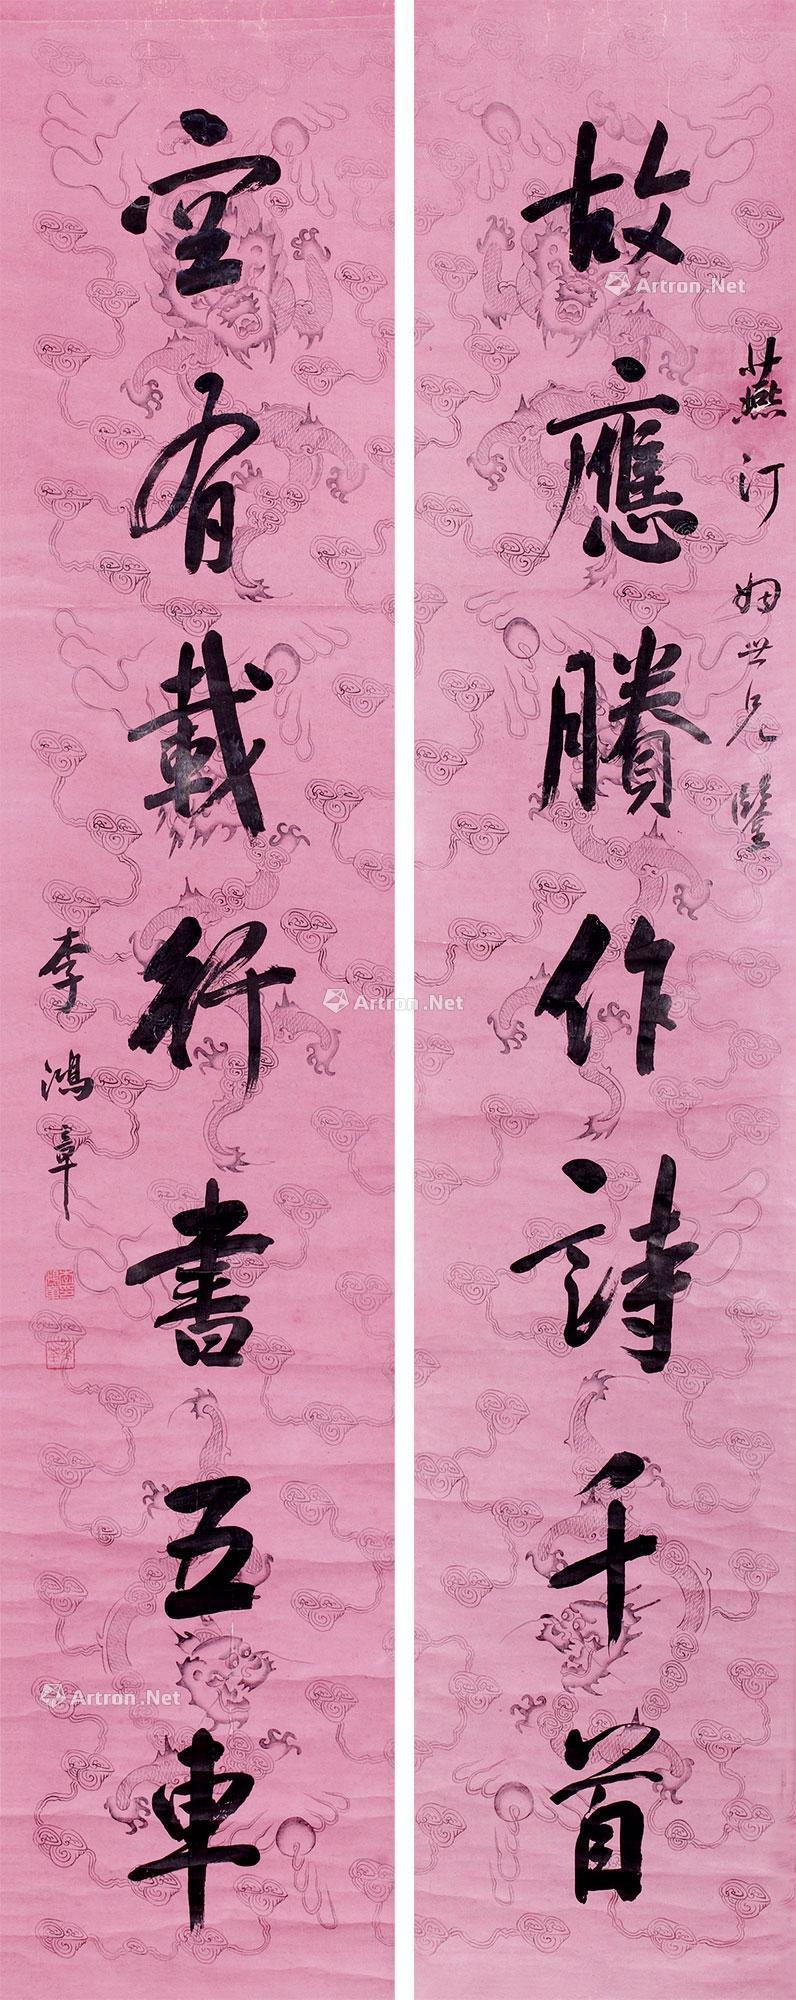 燕汀 姻世兄鑒
故應賸作詩千首
空有載行書五車
李鴻章
Artron.Net
Artron.Net
Artron.Net